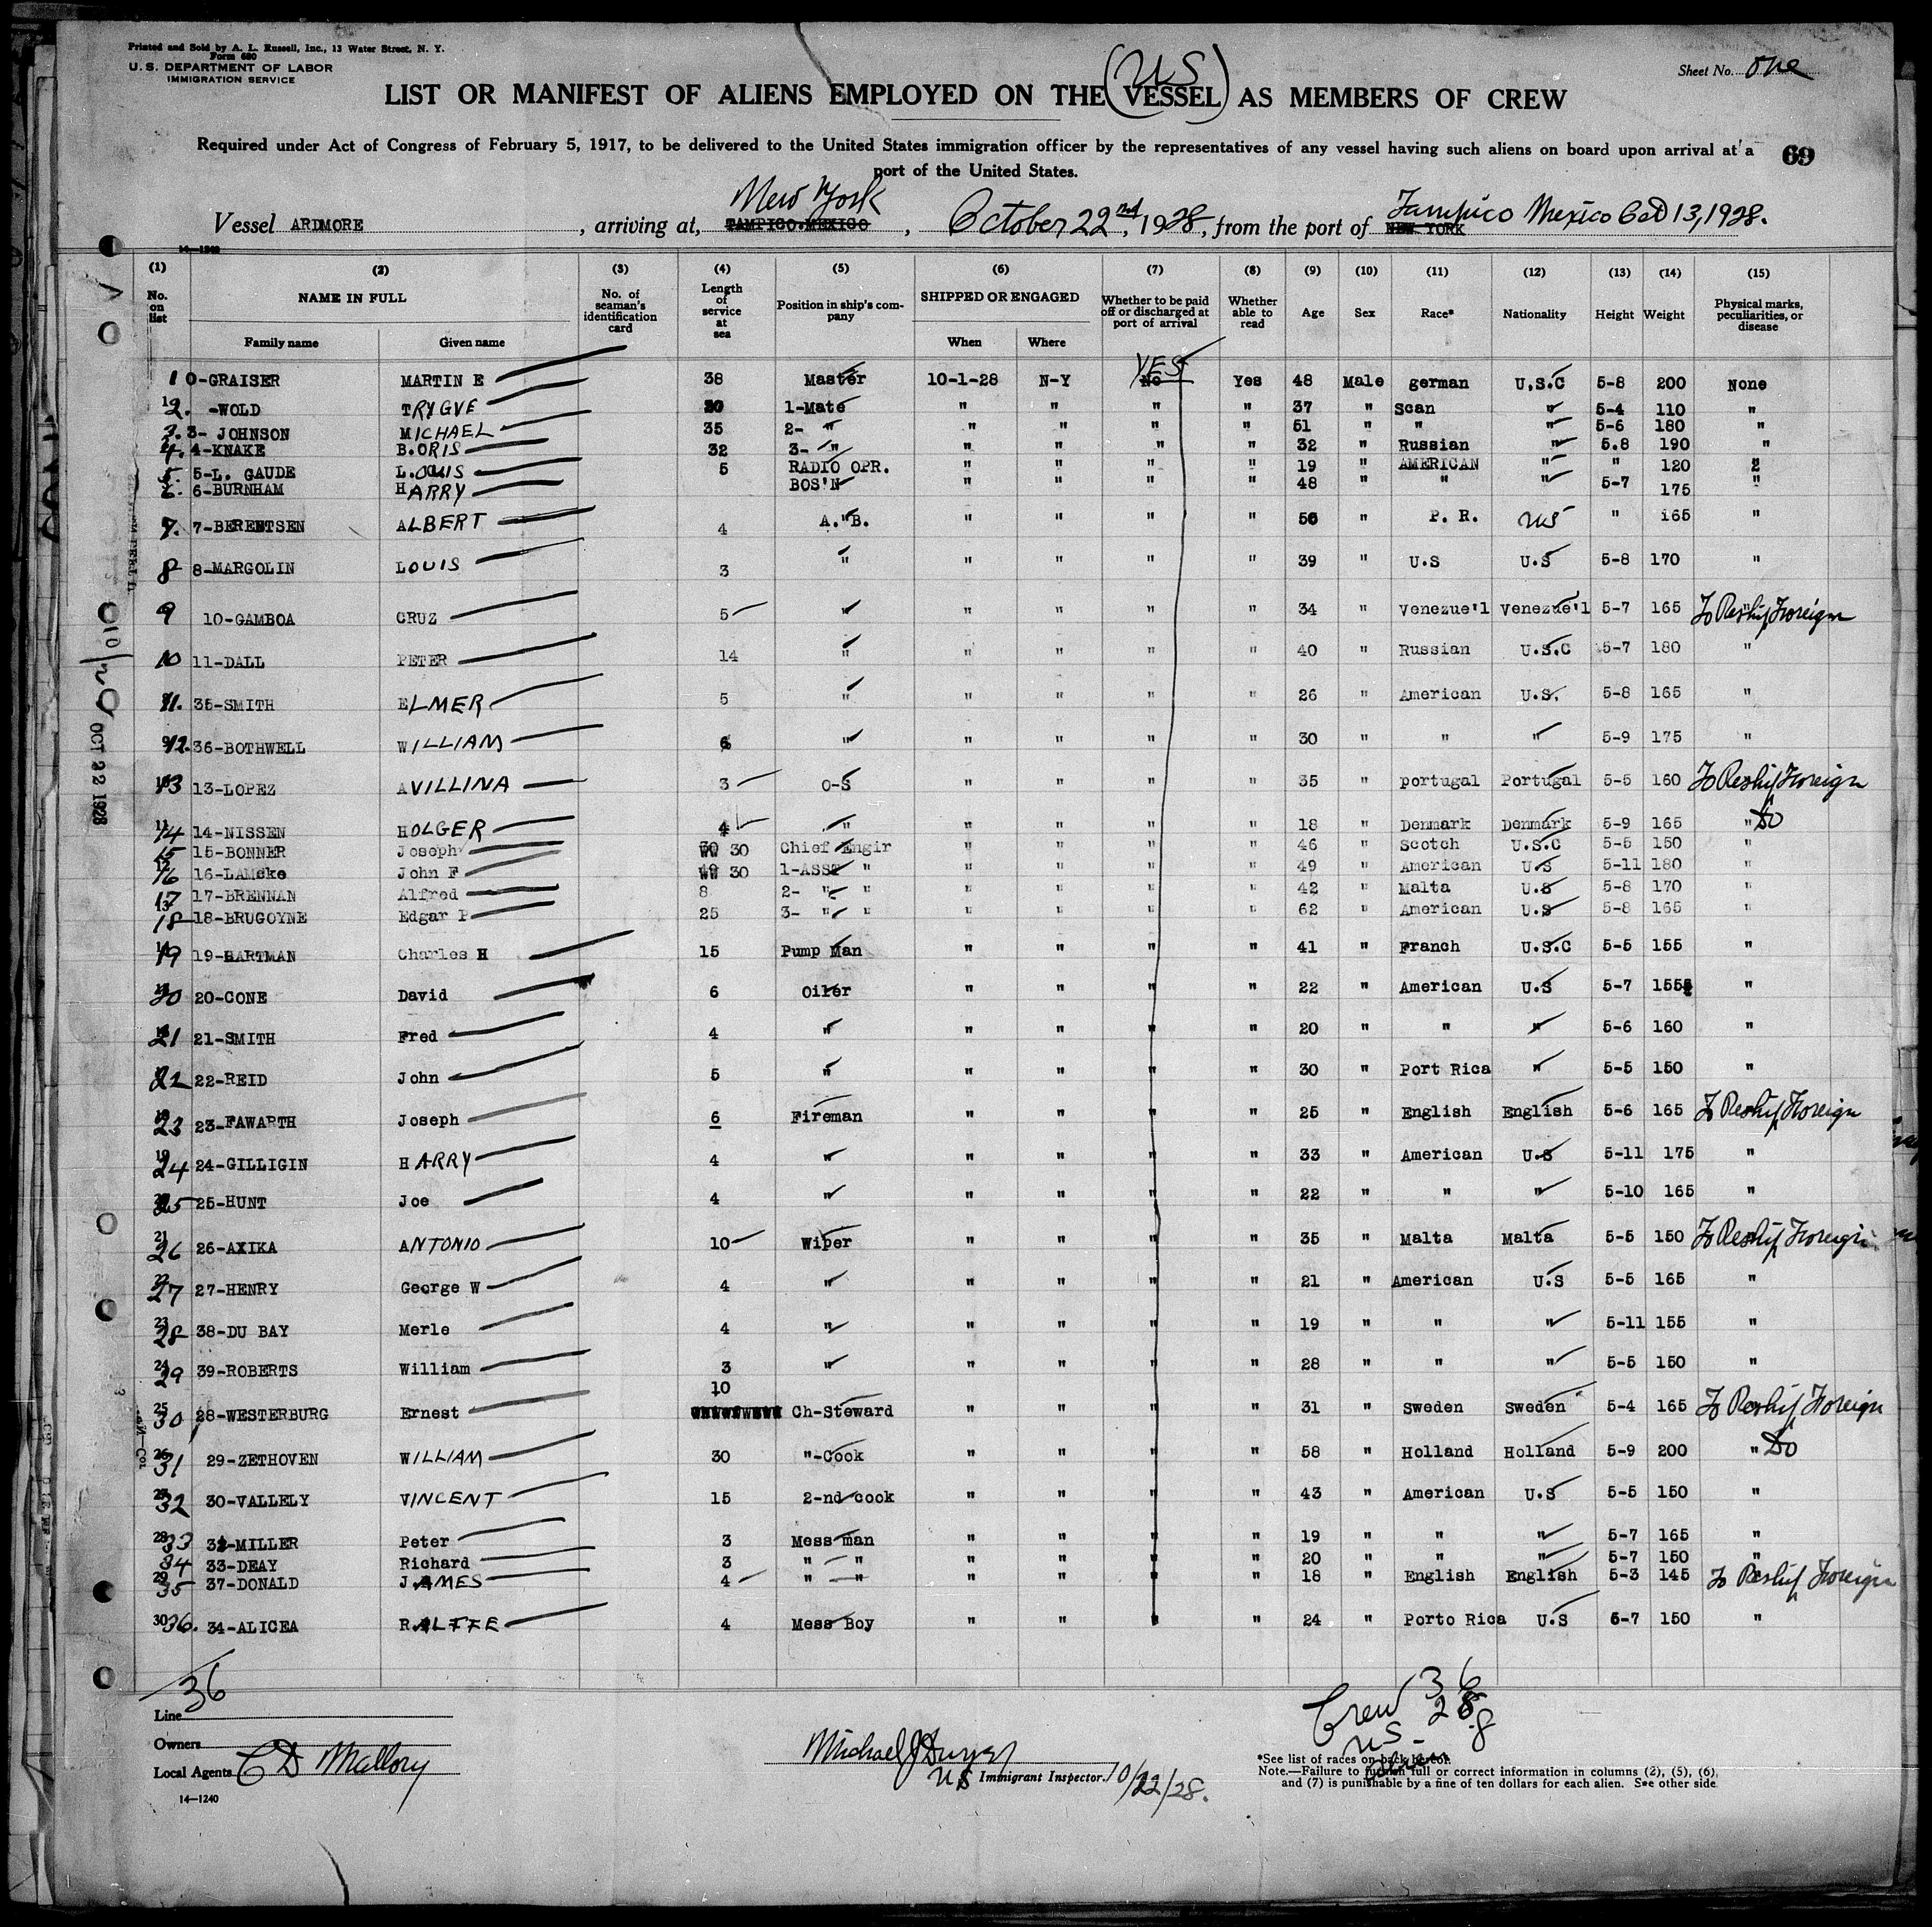 Printed and Sold by A. L. Russell, Inc., 13 Water Street, N. Y.
Form 680
U. S. DEPARTMENT OF LABOR
IMMIGRATION SERVICE
Sheet No. one
(US)
LIST OR MANIFEST OF ALIENS EMPLOYED ON THE VESSEL AS MEMBERS OF CREW
Required under Act of Congress of February 5, 1917, to be delivered to the United States immigration officer by the representatives of any vessel having such aliens on board upon arrival at a
port of the United States.
69
Vessel ARDMORE, arriving at, New York TAMPICO.MEXICO, October 22nd, 1928, from the port of Tampico Mexico Oct 13, 1928. NEW YORK
14-1240
(1) (2) (3) (4) (5) (6) (7) (8) (9) (10) (11) (12) (13) (14) (15)
No. on list NAME IN FULL Family name Given name No. of seaman's identification card Length of service at sea Position in ship's company SHIPPED OR ENGAGED When Where Whether to be paid off or discharged at port of arrival Whether able to read Age Sex Race* Nationality Height Weight Physical marks, peculiarities, or disease
YES
1 0-GRAISER MARTIN E 38 Master 10-1-28 N-Y No Yes 48 Male german U.S.C 5-8 200 None
2. -WOLD TRYGVE 20 1-Mate " " " " 37 " Scan " 5-4 110 "
3. 3- JOHNSON MICHAEL 35 2- " " " " " 51 " " " 5-6 180 "
4. 4-KNAKE B.ORIS 32 3- " " " " " 32 " Russian " 5.8 190 "
5. 5-L. GAUDE L.OUIS 5 RADIO OPR. " " " " 19 " AMERICAN " " 120 "
6. 6-BURNHAM HARRY BOS'N " " " " 48 " " " 5-7 175 "
7. 7-BERENTSEN ALBERT 4 A."B. " " " " 56 " P. R. US " 165 "
8 8-MARGOLIN LOUIS 3 " " " " " 39 " U.S U.S 5-8 170 "
9 10-GAMBOA CRUZ 5 " " " " " 34 " Venezue'l Venezue'l 5-7 165 To Reship Foreign
10 11-DALL PETER 14 " " " " " 40 " Russian U.S.C 5-7 180 "
11. 35-SMITH ELMER 5 " " " " " 26 " American U.S. 5-8 165 "
12. 36-BOTHWELL WILLIAM 6 " " " " " 30 " " " 5-9 175 "
13 13-LOPEZ AVILLINA 3 O-S " " " " 35 " portugal Portugal 5-5 160 To Reship Foreign
14 14-NISSEN HOLGER 4 " " " " " 18 " Denmark Denmark 5-9 165 " Do
15 15-BONNER Joseph 30 Chief Engir " " " " 46 " Scotch U.S.C 5-5 150 "
16 16-LAMske John F 30 1-ASST " " " " " 49 " American U.S 5-11 180 "
17 17-BRENNAN Alfred 8 2- " " " " " " 42 " Malta U.S 5-8 170 "
18 18-BRUGOYNE Edgar P 25 3- " " " " " " 62 " American U.S 5-8 165 "
19 19-HARTMAN Charles H 15 Pump Man " " " " 41 " Franch U.S.C 5-5 155 "
20 20-CONE David 6 Oiler " " " " 22 " American U.S 5-7 155 "
21 21-SMITH Fred 4 " " " " " 20 " " " 5-6 160 "
22 22-REID John 5 " " " " " 30 " Port Rica " 5-5 150 "
23 23-FAWARTH Joseph 6 Fireman " " " " 25 " English English 5-6 165 To Reship Foreign
24 24-GILLIGIN HARRY 4 " " " " " 33 " American U.S 5-11 175 "
25 25-HUNT Joe 4 " " " " " 22 " " " 5-10 165 "
26 26-AXIKA ANTONIO 10 Wiper " " " " 35 " Malta Malta 5-5 150 To Reship Foreign
27 27-HENRY George W 4 " " " " " 21 " American U.S 5-5 165 "
28 38-DU BAY Merle 4 " " " " " 19 " " " 5-11 155 "
29 39-ROBERTS William 3 " " " " " 28 " " " 5-5 150 "
30 28-WESTERBURG Ernest 10 Ch-Steward " " " " 31 " Sweden Sweden 5-4 165 To Reship Foreign
31 29-ZETHOVEN WILLIAM 30 "-Cook " " " " 58 " Holland Holland 5-9 200 " Do
32 30-VALLELY VINCENT 15 2-nd cook " " " " 43 " American U.S 5-5 150 "
33 32-MILLER Peter 3 Mess man " " " " 19 " " " 5-7 165 "
34 33-DEAY Richard 3 " - " " " " " 20 " " " 5-7 150 "
35 37-DONALD J.AMES 4 " - " " " " " 18 " English English 5-3 145 To Reship Foreign
36. 34-ALICEA RALFFE 4 Mess Boy " " " " 24 " Porto Rica U.S 5-7 150 "
OCT 22 1928
36
Crew 36
US 28
alien 8
Line
Owners
Local Agents C D Mallory
Michael J Dwyer
US Immigrant Inspector. 10/22/28.
*See list of races on back hereof.
Note.—Failure to furnish full or correct information in columns (2), (5), (6), and (7) is punishable by a fine of ten dollars for each alien. See other side
14-1240